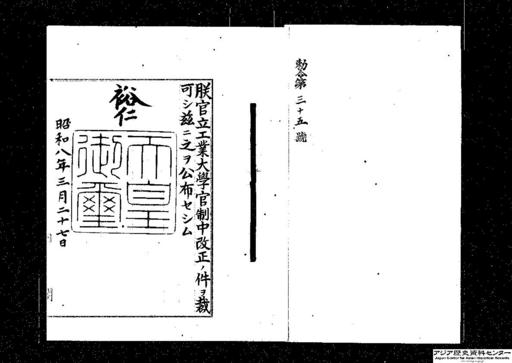 勅令第三十五號
朕官立工業大學官制中改正ノ件ヲ裁
可シ茲ニ之ヲ公布セシム
裕仁
天皇
御璽
昭和八年三月二十七日
アジア歴史資料センター
Japan Center for Asian Historical Records